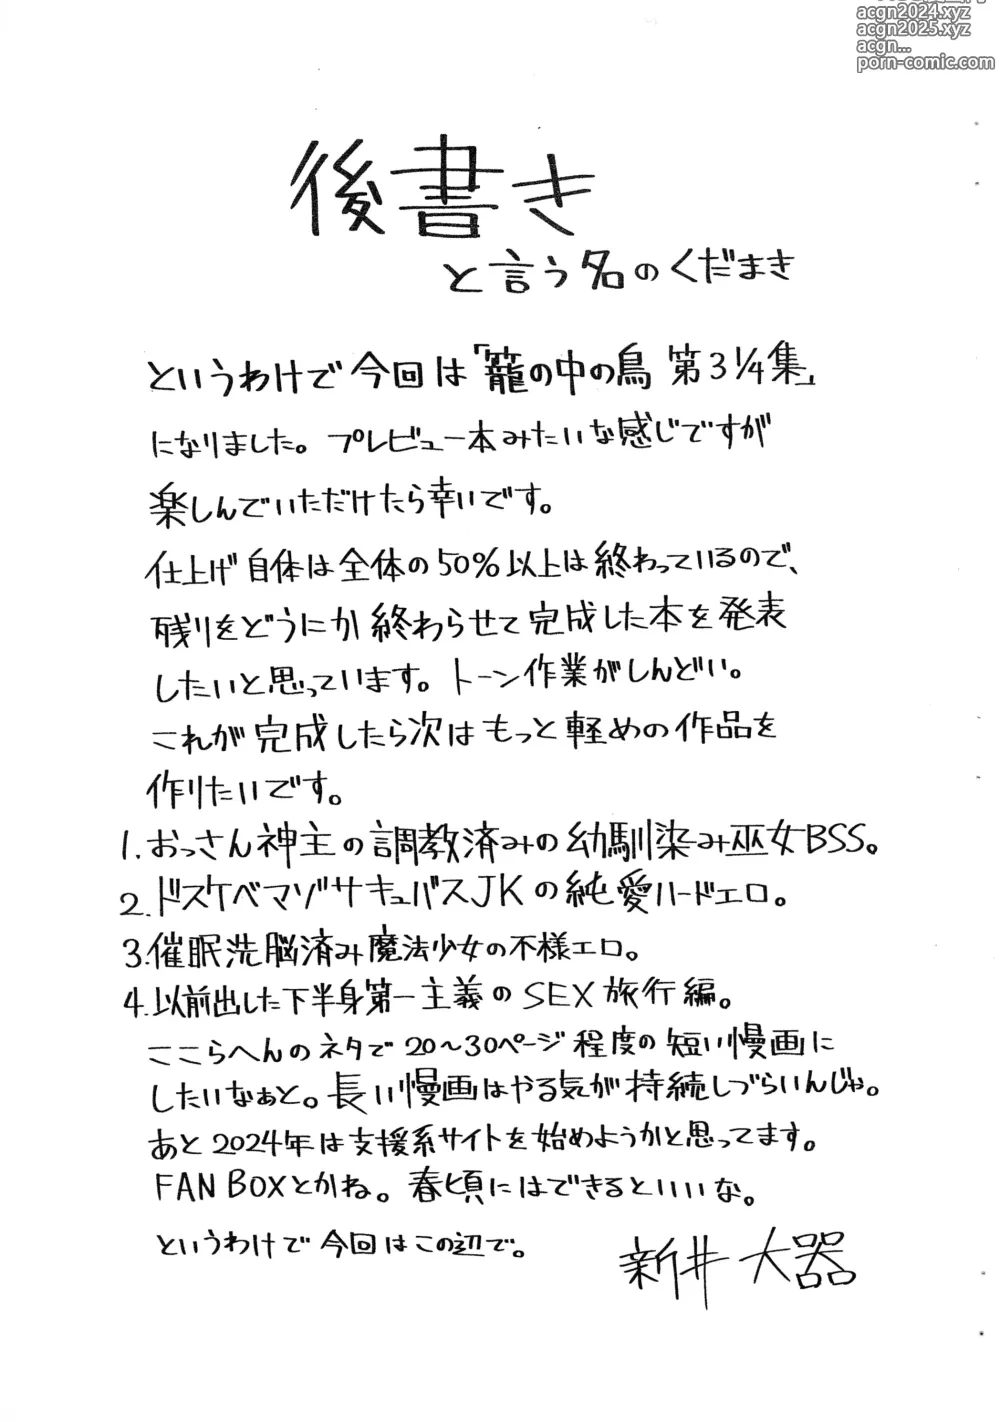 acgn2024.xyz
acgn2025.xyz
acgn...
porn-comic.com
後書き
と言う名のくだまき
というわけで今回は「籠の中の鳥 第3 1/4集」
になりました。プレビュー本みたいな感じですが
楽しんでいただけたら幸いです。
仕上げ自体は全体の50%以上は終わっているので、
残りをどうにか終わらせて完成した本を発表
したいと思っています。トーン作業がしんどい。
これが完成したら次はもっと軽めの作品を
作りたいです。
1.おっさん神主の調教済みの幼馴染み巫女BSS。
2.ドスケベマゾサキュバスJKの純愛ハードエロ。
3.催眠洗脳済み魔法少女の不様エロ。
4.以前出した下半身第一主義のSEX旅行編。
ここらへんのネタで20〜30ページ程度の短い漫画に
したいなぁと。長い漫画はやる気が持続しづらいんじゃ。
あと2024年は支援系サイトを始めようかと思ってます。
FANBOXとかね。春頃にはできるといいな。
というわけで今回はこの辺で。
新井大器